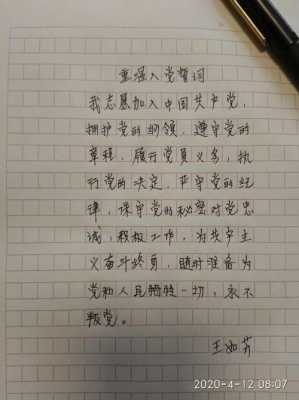 重温入党誓词
我志愿加入中国共产党,
拥护党的纲领,遵守党的
章程,履行党员义务,执
行党的决定,严守党的纪
律,保守党的秘密对党忠
诚,积极工作,为共产主
义奋斗终身,随时准备为
党和人民牺牲一切,永不
叛党。
王如芳
2020-4-12 08:07